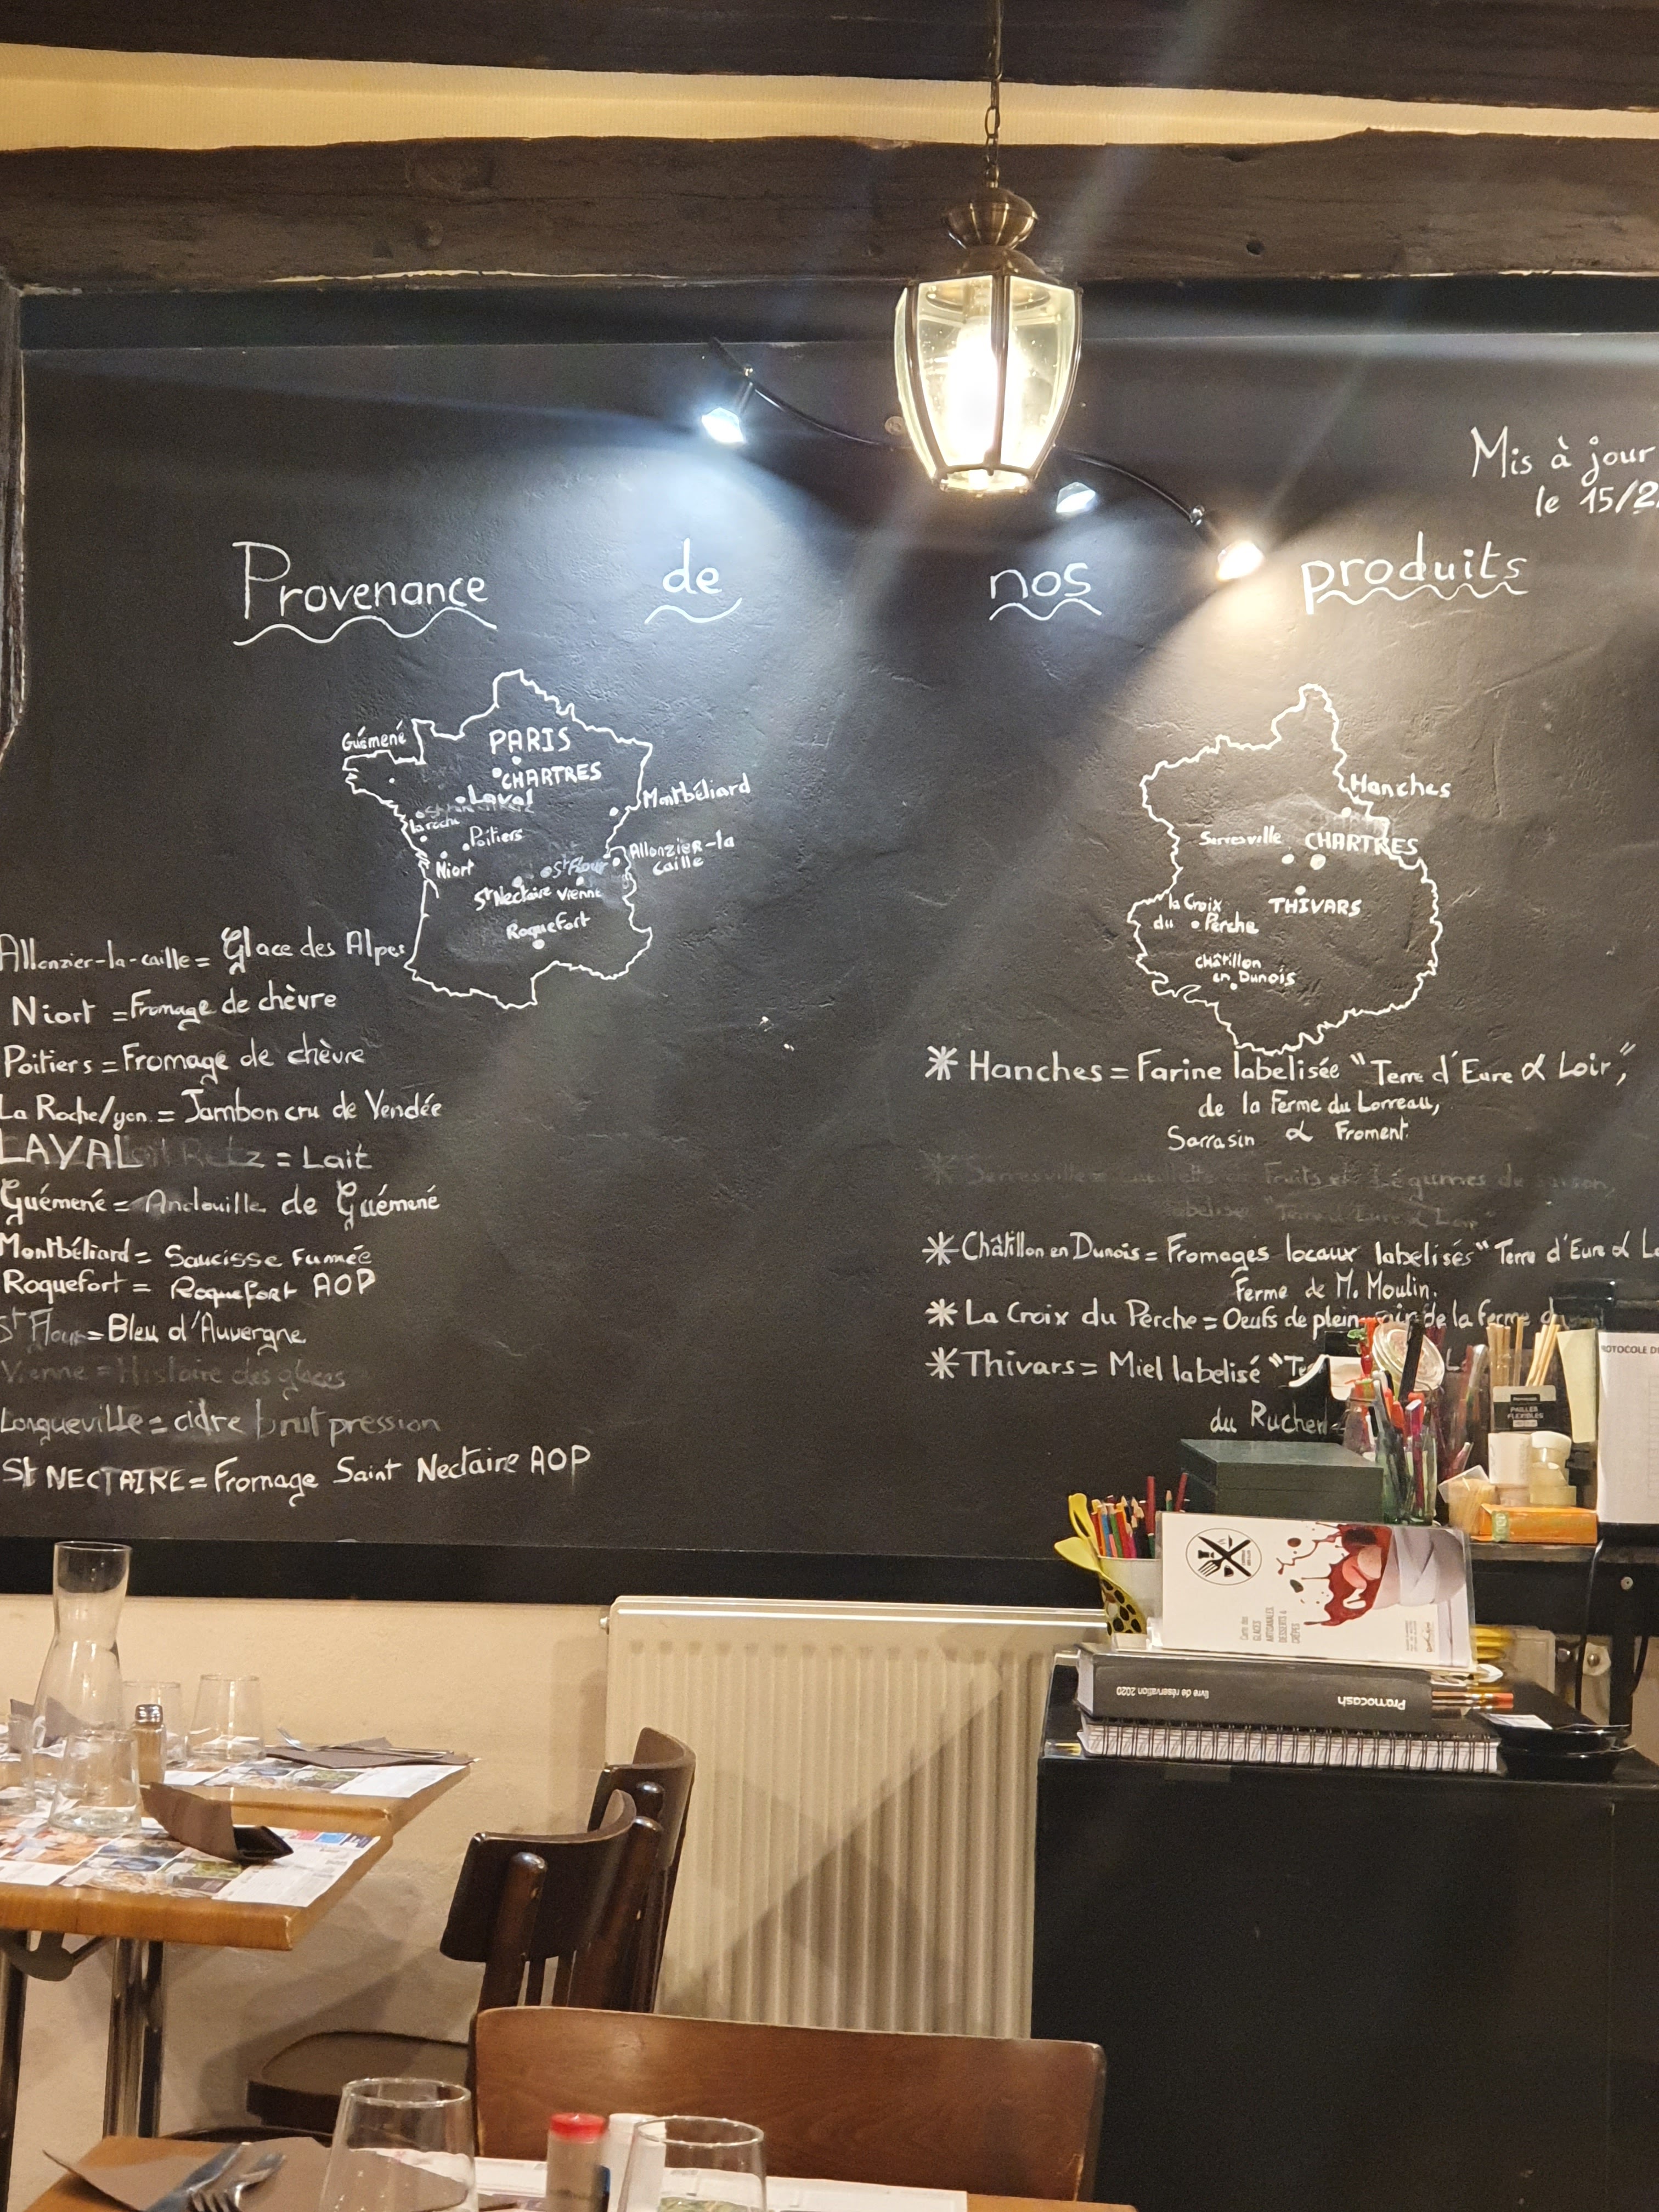 Mis à jour
le 15/2
Provenance de nos produits
Guémené
PARIS
CHARTRES
Laval
la roche
Poitiers
Niort
Montbéliard
Allonzier-la
caille
St Flour
St Nectaire Vienne
Roquefort
Allonzier-la-caille = Glace des Alpes
Niort = Fromage de chèvre
Poitiers = Fromage de chèvre
La Roche/yon = Jambon cru de Vendée
LAVAL = Lait
Guémené = Andouille de Guémené
Montbéliard = Saucisse Fumée
Roquefort = Roquefort AOP
St Flour = Bleu d'Auvergne
Vienne = Histoire des glaces
Longueville = cidre brut pression
St NECTAIRE = Fromage Saint Nectaire AOP
Hanches
Serresville CHARTRES
THIVARS
la Croix
du Perche
Châtillon
en Dunois
* Hanches = Farine labelisée "Terre d'Eure & Loir",
de la Ferme du Lorreau,
Sarrasin & Froment
* Serresville = Cueillette de Fruits et Légumes de saison,
labelisé "Terre d'Eure & Loir"
* Châtillon en Dunois = Fromages locaux labelisés "Terre d'Eure & Lo
Ferme de M. Moulin.
* La Croix du Perche = Oeufs de plein air de la ferme d
* Thivars = Miel labelisé "Te
du Rucher
PROTOCOLE D
PAILLES
FLEXIBLES
Carte des
GLACES
ARTISANALES,
DESSERTS &
CRÊPES
Promocash livre de réservation 2020